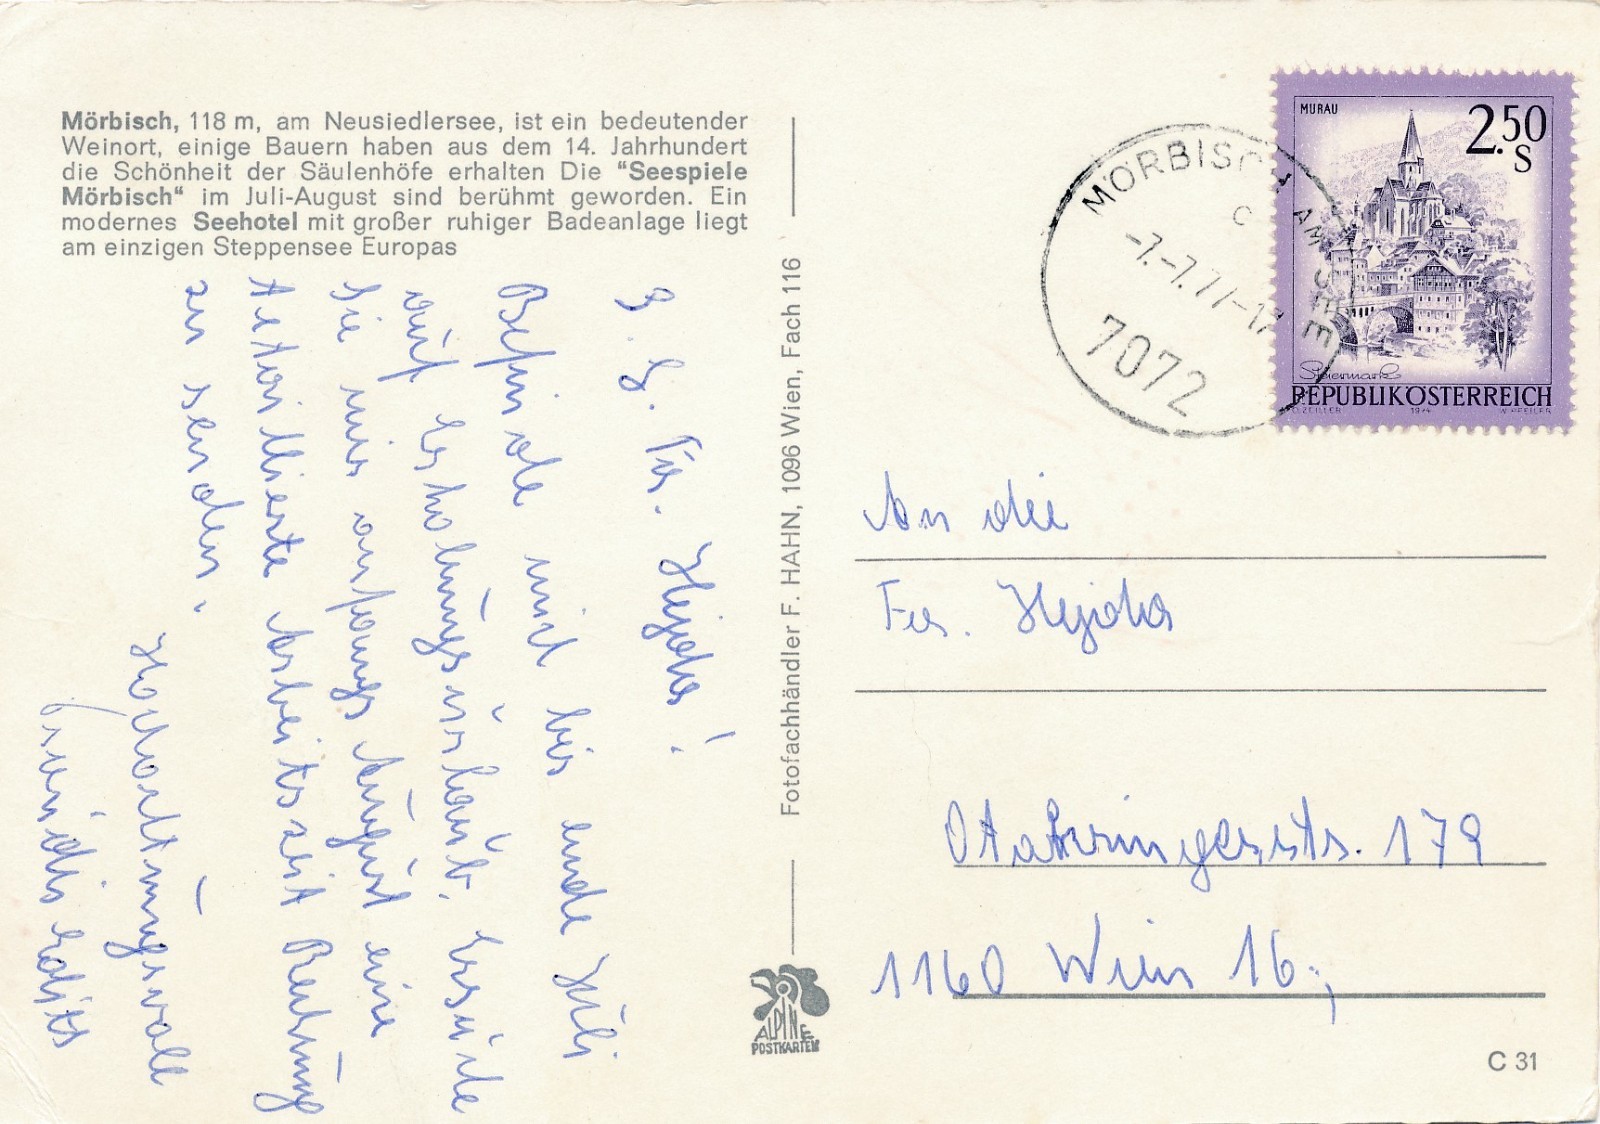 Mörbisch, 118 m, am Neusiedlersee, ist ein bedeutender
Weinort, einige Bauern haben aus dem 14. Jahrhundert
die Schönheit der Säulenhöfe erhalten Die "Seespiele
Mörbisch" im Juli-August sind berühmt geworden. Ein
modernes Seehotel mit großer ruhiger Badeanlage liegt
am einzigen Steppensee Europas
S. G. Fa. Hejda!
Befinde mich bis ende Juli
auf Erholungsurlaub. Ersuche
Sie mir anfangs August eine
detaillierte Arbeitszeit Rechnung
zu senden.
Hochachtungsvoll
Fotofachhändler F. HAHN, 1096 Wien, Fach 116
ALPINE
POSTKARTEN
MÖRBISCH AM SEE
C
-7.-7.77-17
7072
MURAU
2.50
S
Steiermark
REPUBLIK ÖSTERREICH
O. ZEILLER 1974 W. PFEILER
An die
Fa. Hejda
Otakringerstr. 179
1160 Wien 16;
C 31